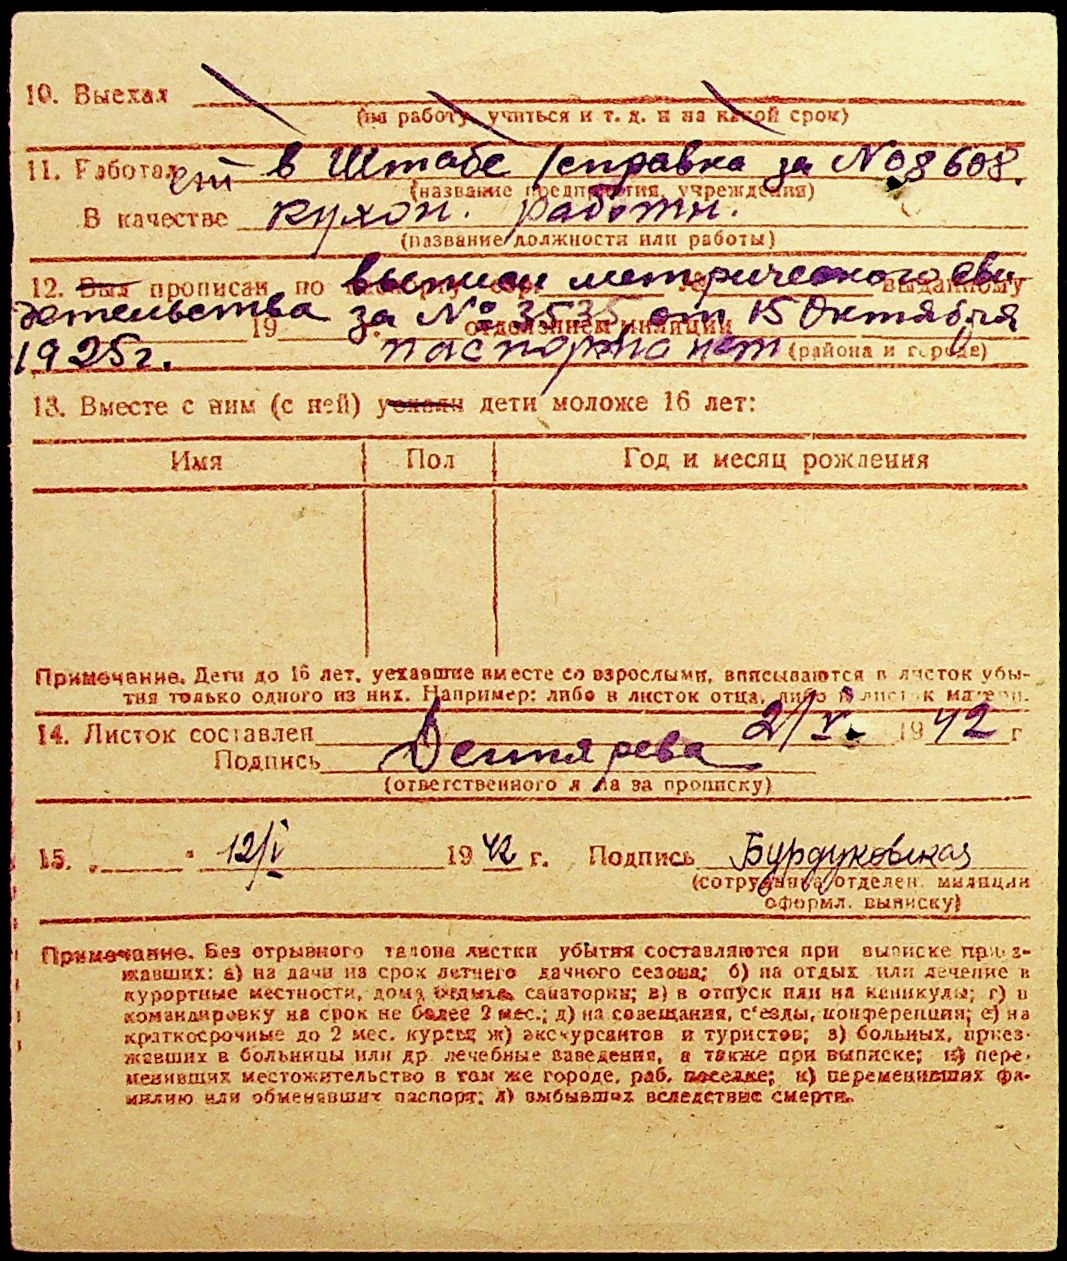 10. Выехал
(на работу, учиться и т. д. и на какой срок)
11. Работал ет в Штабе /справка за № 08608.
(название предприятия, учреждения)
В качестве кухон. работн.
(название должности или работы)
12. Был прописан по выписи метрического сви
выданному
детельства за № 3535 от 15 Октября
19 отделением милиции
1925 г. паспорта нет (района и города)
13. Вместе с ним (с ней) уехали дети моложе 16 лет:
Имя Пол Год и месяц рождения
Примечание. Дети до 16 лет, уехавшие вместе со взрослыми, вписываются в листок убы-
тия только одного из них. Например: либо в листок отца, либо в листок матери.
14. Листок составлен 2/V. 1942 г
Подпись Дегтярева
(ответственного лица за прописку)
15. „ " 12/V 1942 г. Подпись Бурдуковская
(сотрудника отделен. милиции
оформл. выписку)
Примечание. Без отрывного талона листки убытия составляются при выписке приез-
жавших: а) на дачи на срок летнего дачного сезона; б) на отдых или лечение в
курортные местности, дома отдыха, санатории; в) в отпуск или на каникулы; г) в
командировку на срок не более 2 мес.; д) на совещания, с'езды, конференции; е) на
краткосрочные до 2 мес. курсы; ж) экскурсантов и туристов; з) больных, приез-
жавших в больницы или др. лечебные заведения, а также при выписке; и) пере-
менивших местожительство в том же городе, раб. поселке; к) переменивших фа-
милию или обменявших паспорт; л) выбывших вследствие смерти.